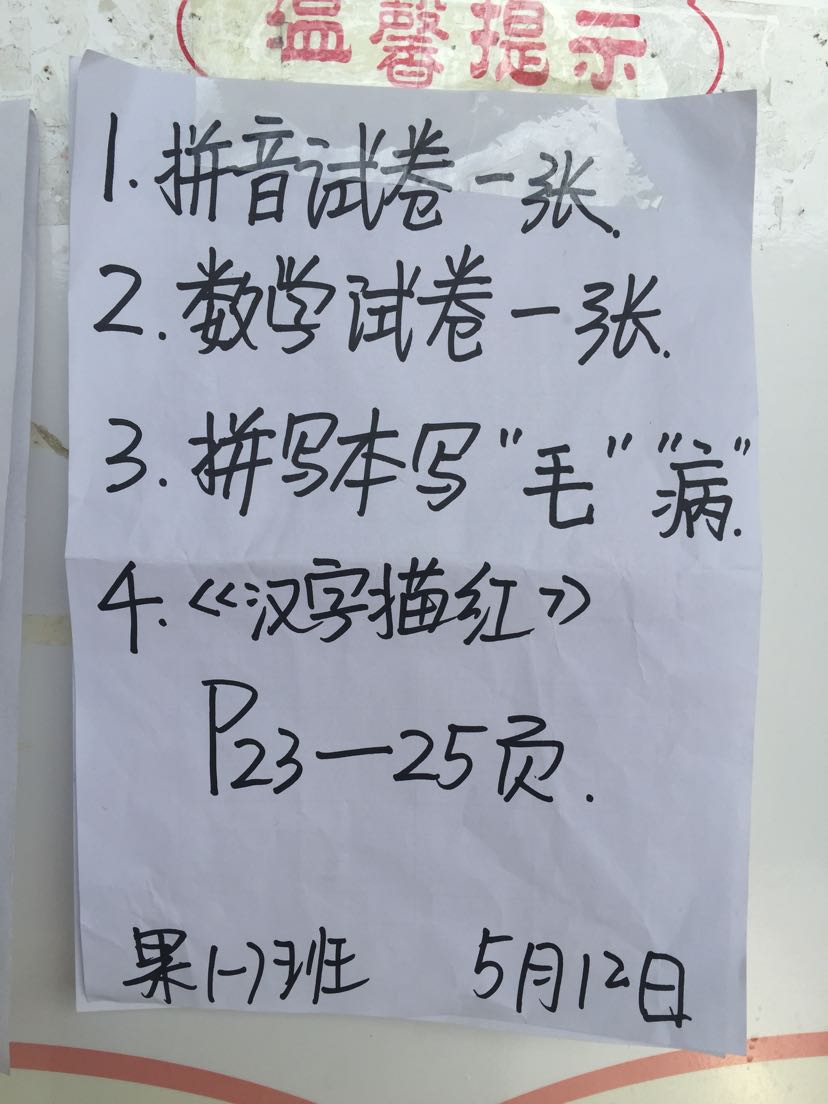 温馨提示
1.拼音试卷一张.
2.数学试卷一张.
3.拼写本写"毛""病".
4.《汉字描红》
P23—25页.
果(一)班 5月12日